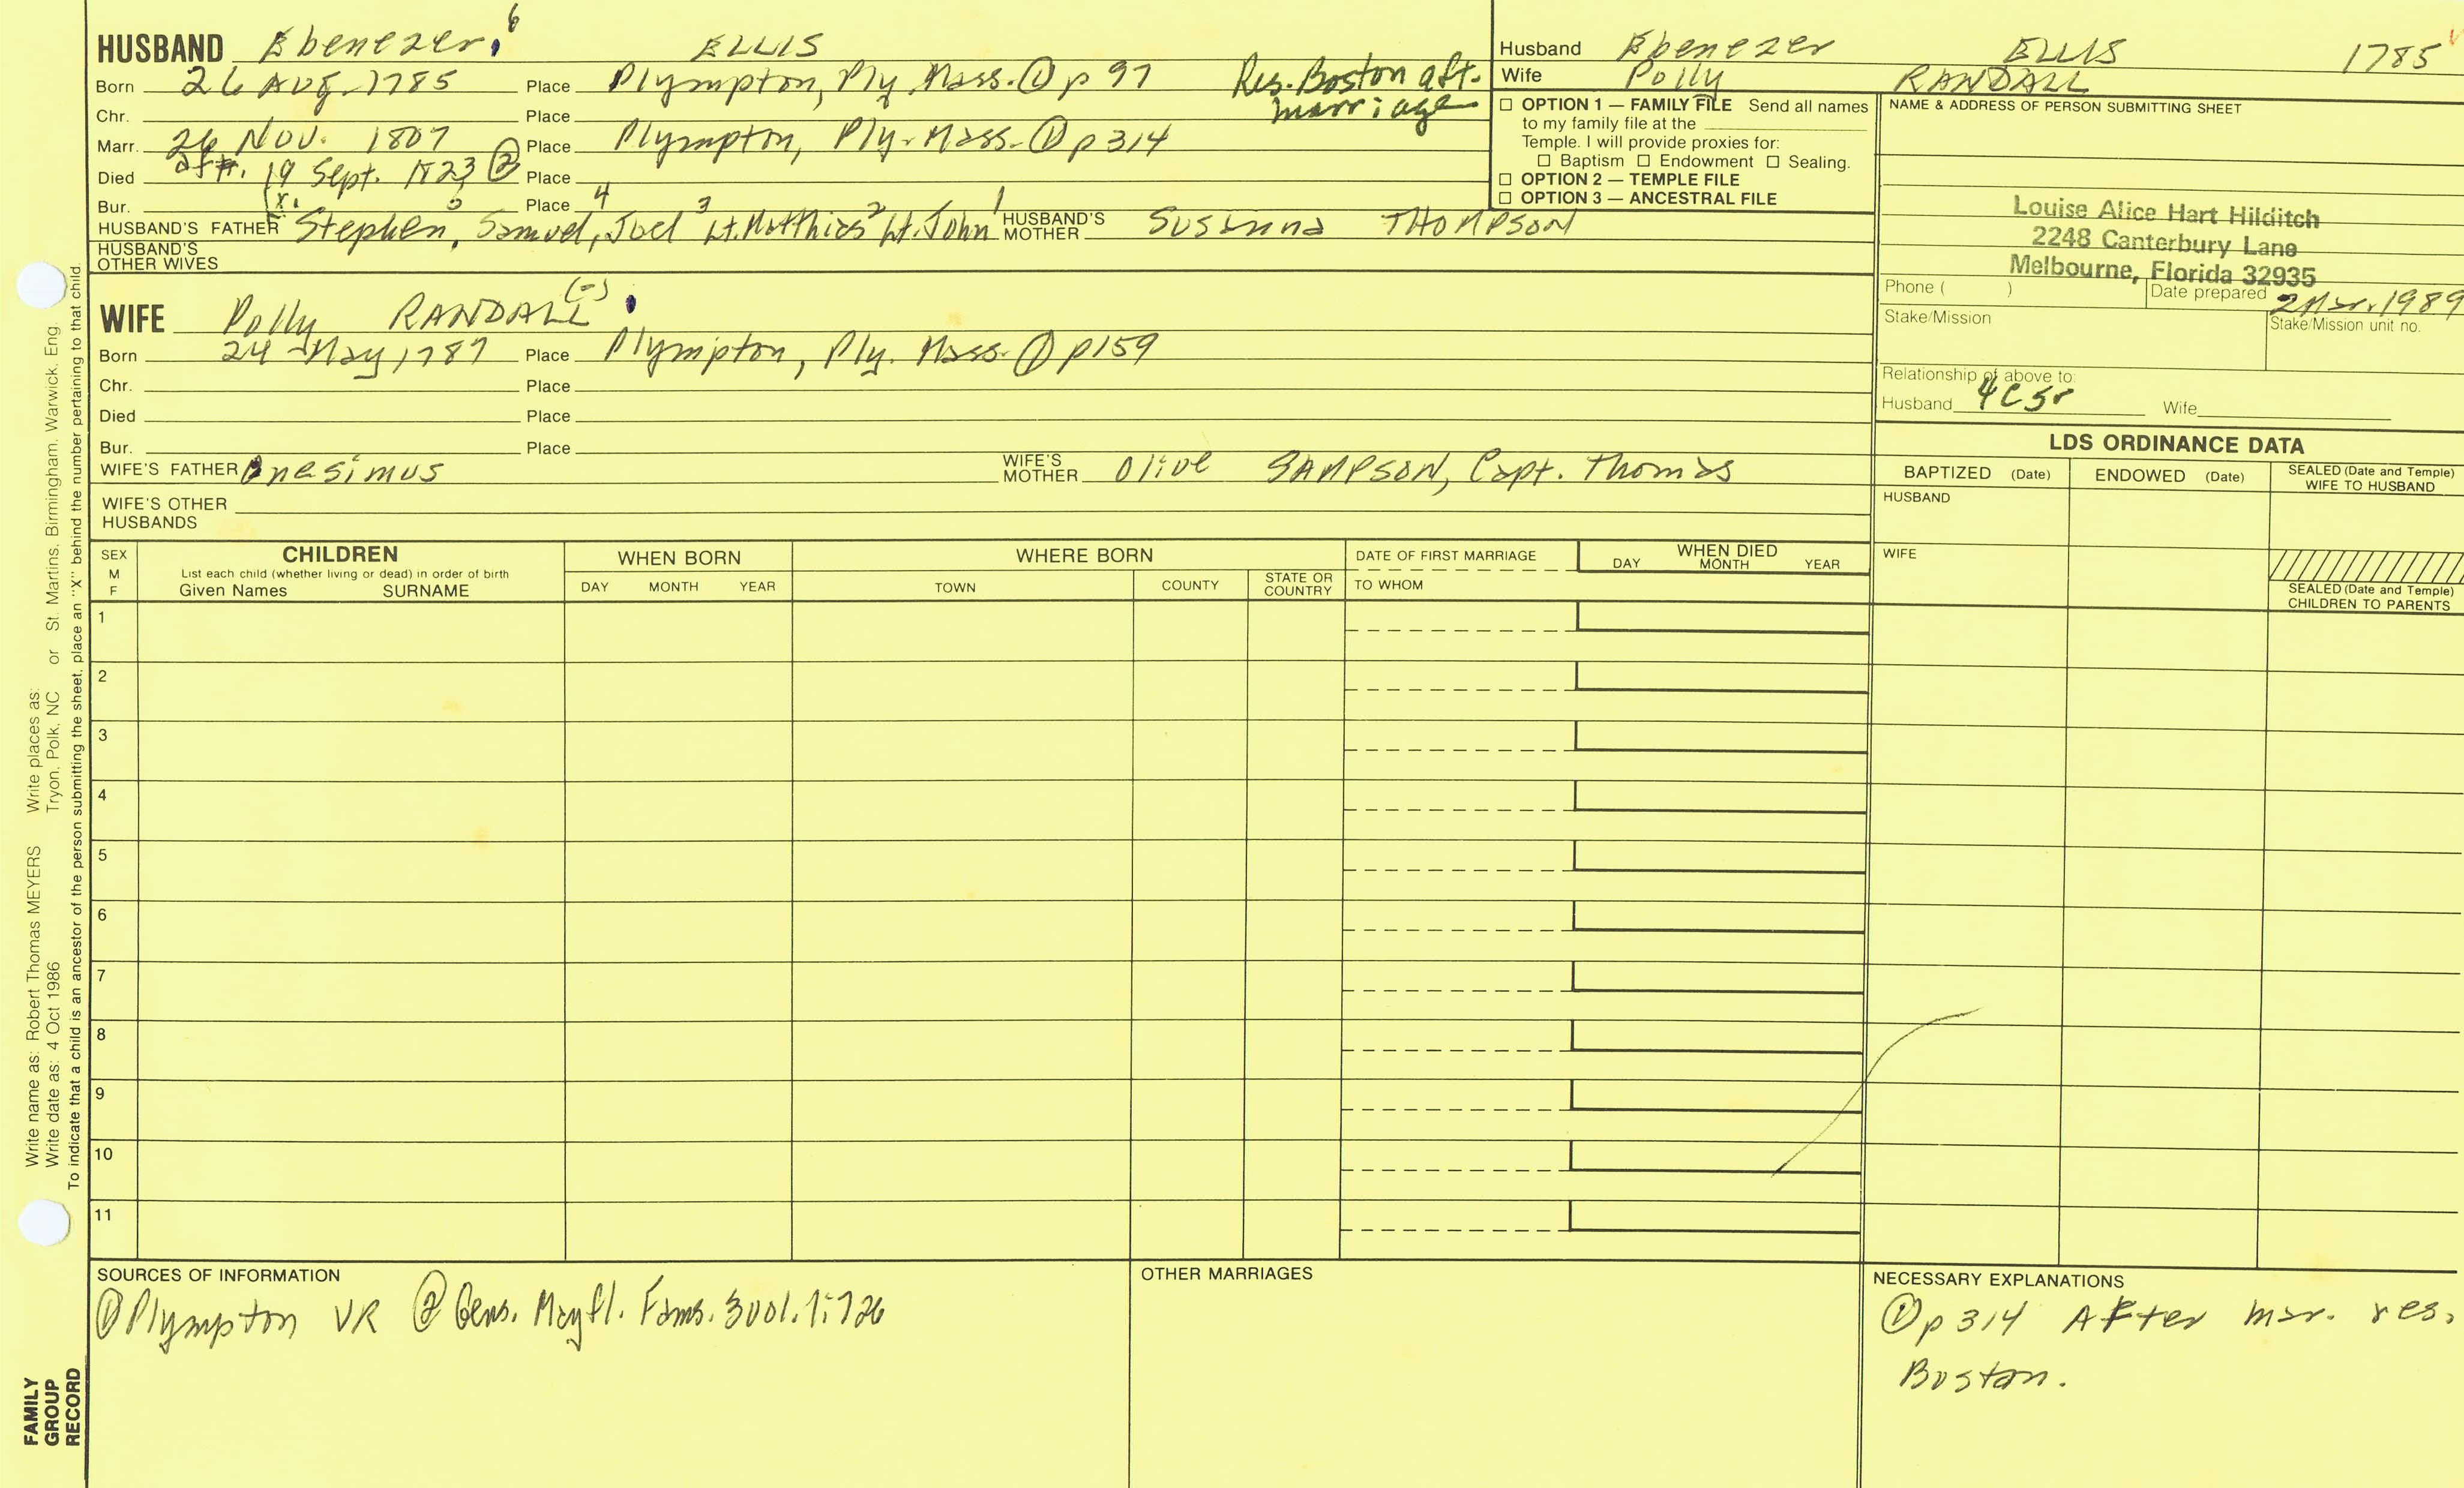 HUSBAND Ebenezer 6 ELLIS
Born 26 Aug. 1785 Place Plympton, Ply. Mass. ① p 97 Res. Boston aft. marriage
Chr. Place
Marr. 26 Nov. 1807 Place Plympton, Ply. Mass. ① p 314
Died aft. 19 Sept. 1823 ② Place
Bur. Place
HUSBAND'S FATHER Stephen 5, Samuel 4, Joel 3 Lt. Matthias 2 Lt. John 1 HUSBAND'S MOTHER Susanna THOMPSON
HUSBAND'S OTHER WIVES
WIFE Polly RANDALL (-)
Born 24 May 1787 Place Plympton, Ply. Mass. ① p 159
Chr. Place
Died Place
Bur. Place
WIFE'S FATHER Onesimus WIFE'S MOTHER Olive SAMPSON, Capt. Thomas
WIFE'S OTHER HUSBANDS
Husband Ebenezer ELLIS 1785
Wife Polly RANDALL
☐ OPTION 1 — FAMILY FILE Send all names
to my family file at the
Temple. I will provide proxies for:
☐ Baptism ☐ Endowment ☐ Sealing.
☐ OPTION 2 — TEMPLE FILE
☐ OPTION 3 — ANCESTRAL FILE
NAME & ADDRESS OF PERSON SUBMITTING SHEET
Louise Alice Hart Hilditch
2248 Canterbury Lane
Melbourne, Florida 32935
Phone ( ) Date prepared 2 Mar. 1989
Stake/Mission Stake/Mission unit no.
Relationship of above to:
Husband 4C5r Wife
LDS ORDINANCE DATA
BAPTIZED (Date) ENDOWED (Date) SEALED (Date and Temple) WIFE TO HUSBAND
HUSBAND
WIFE
SEALED (Date and Temple)
CHILDREN TO PARENTS
SEX M F CHILDREN WHEN BORN WHERE BORN DATE OF FIRST MARRIAGE WHEN DIED
List each child (whether living or dead) in order of birth
Given Names SURNAME DAY MONTH YEAR TOWN COUNTY STATE OR COUNTRY TO WHOM DAY MONTH YEAR
1
2
3
4
5
6
7
8
9
10
11
SOURCES OF INFORMATION
① Plympton VR ② Gens. Mayfl. Fams. 3 vol. 1:726
OTHER MARRIAGES
NECESSARY EXPLANATIONS
① p 314 After mar. res.
Boston.
Write name as: Robert Thomas MEYERS Write places as:
Write date as: 4 Oct 1986 Tryon, Polk, NC or St Martins, Birmingham, Warwick, Eng.
To indicate that a child is an ancestor of the person submitting the sheet, place an "X" behind the number pertaining to that child.
FAMILY
GROUP
RECORD